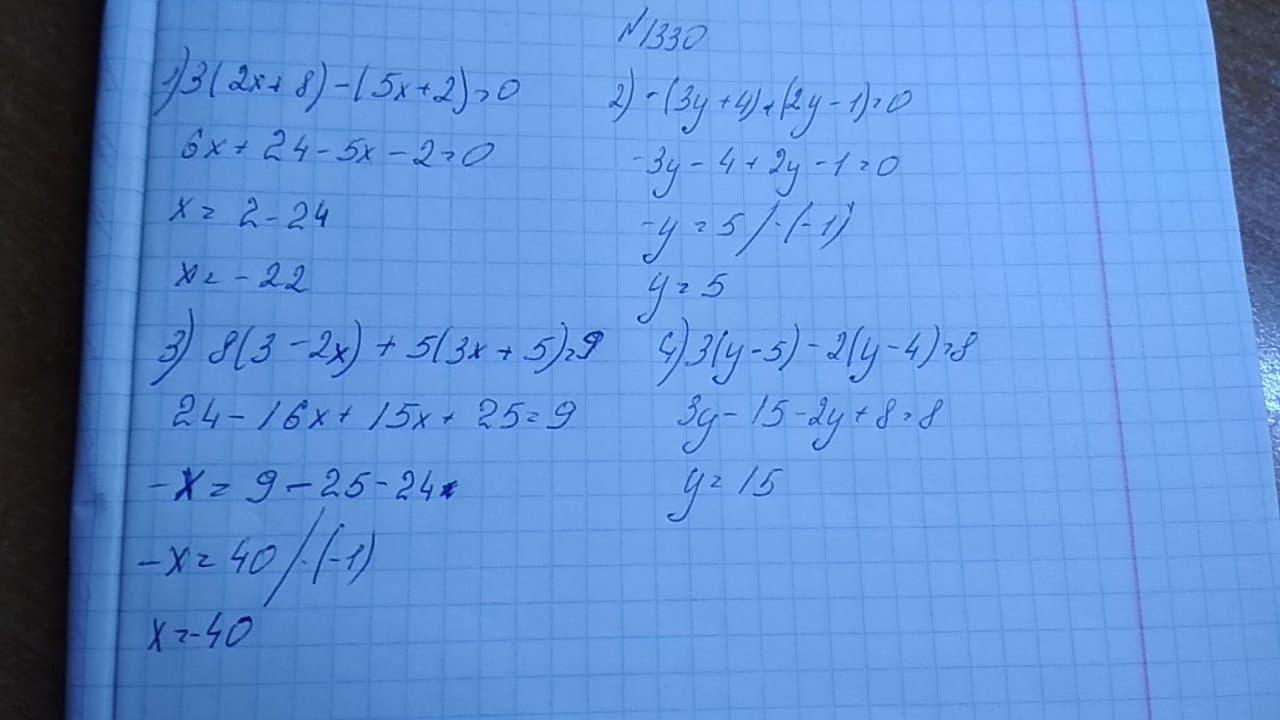 №1330
1) 3(2x+8)-(5x+2)=0
6x+24-5x-2=0
x=2-24
x=-22
2) -(3y+4)+(2y-1)=0
-3y-4+2y-1=0
-y=5/·(-1)
y=5
3) 8(3-2x)+5(3x+5)=9
24-16x+15x+25=9
-x=9-25-24
-x=40/·(-1)
x=-40
4) 3(y-5)-2(y-4)=8
3y-15-2y+8=8
y=15